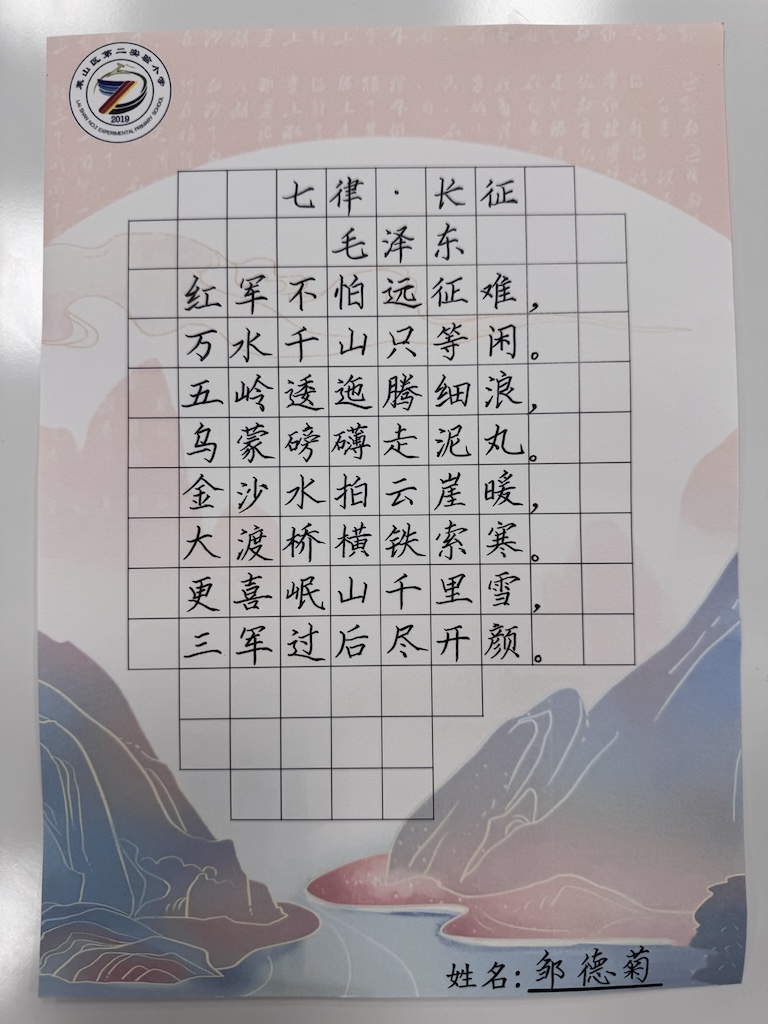 莱山区第二实验小学
LAI SHAN NO.2 EXPERIMENTAL PRIMARY SCHOOL
2019
七律·长征
毛泽东
红军不怕远征难，
万水千山只等闲。
五岭逶迤腾细浪，
乌蒙磅礴走泥丸。
金沙水拍云崖暖，
大渡桥横铁索寒。
更喜岷山千里雪，
三军过后尽开颜。
姓名：邹德菊